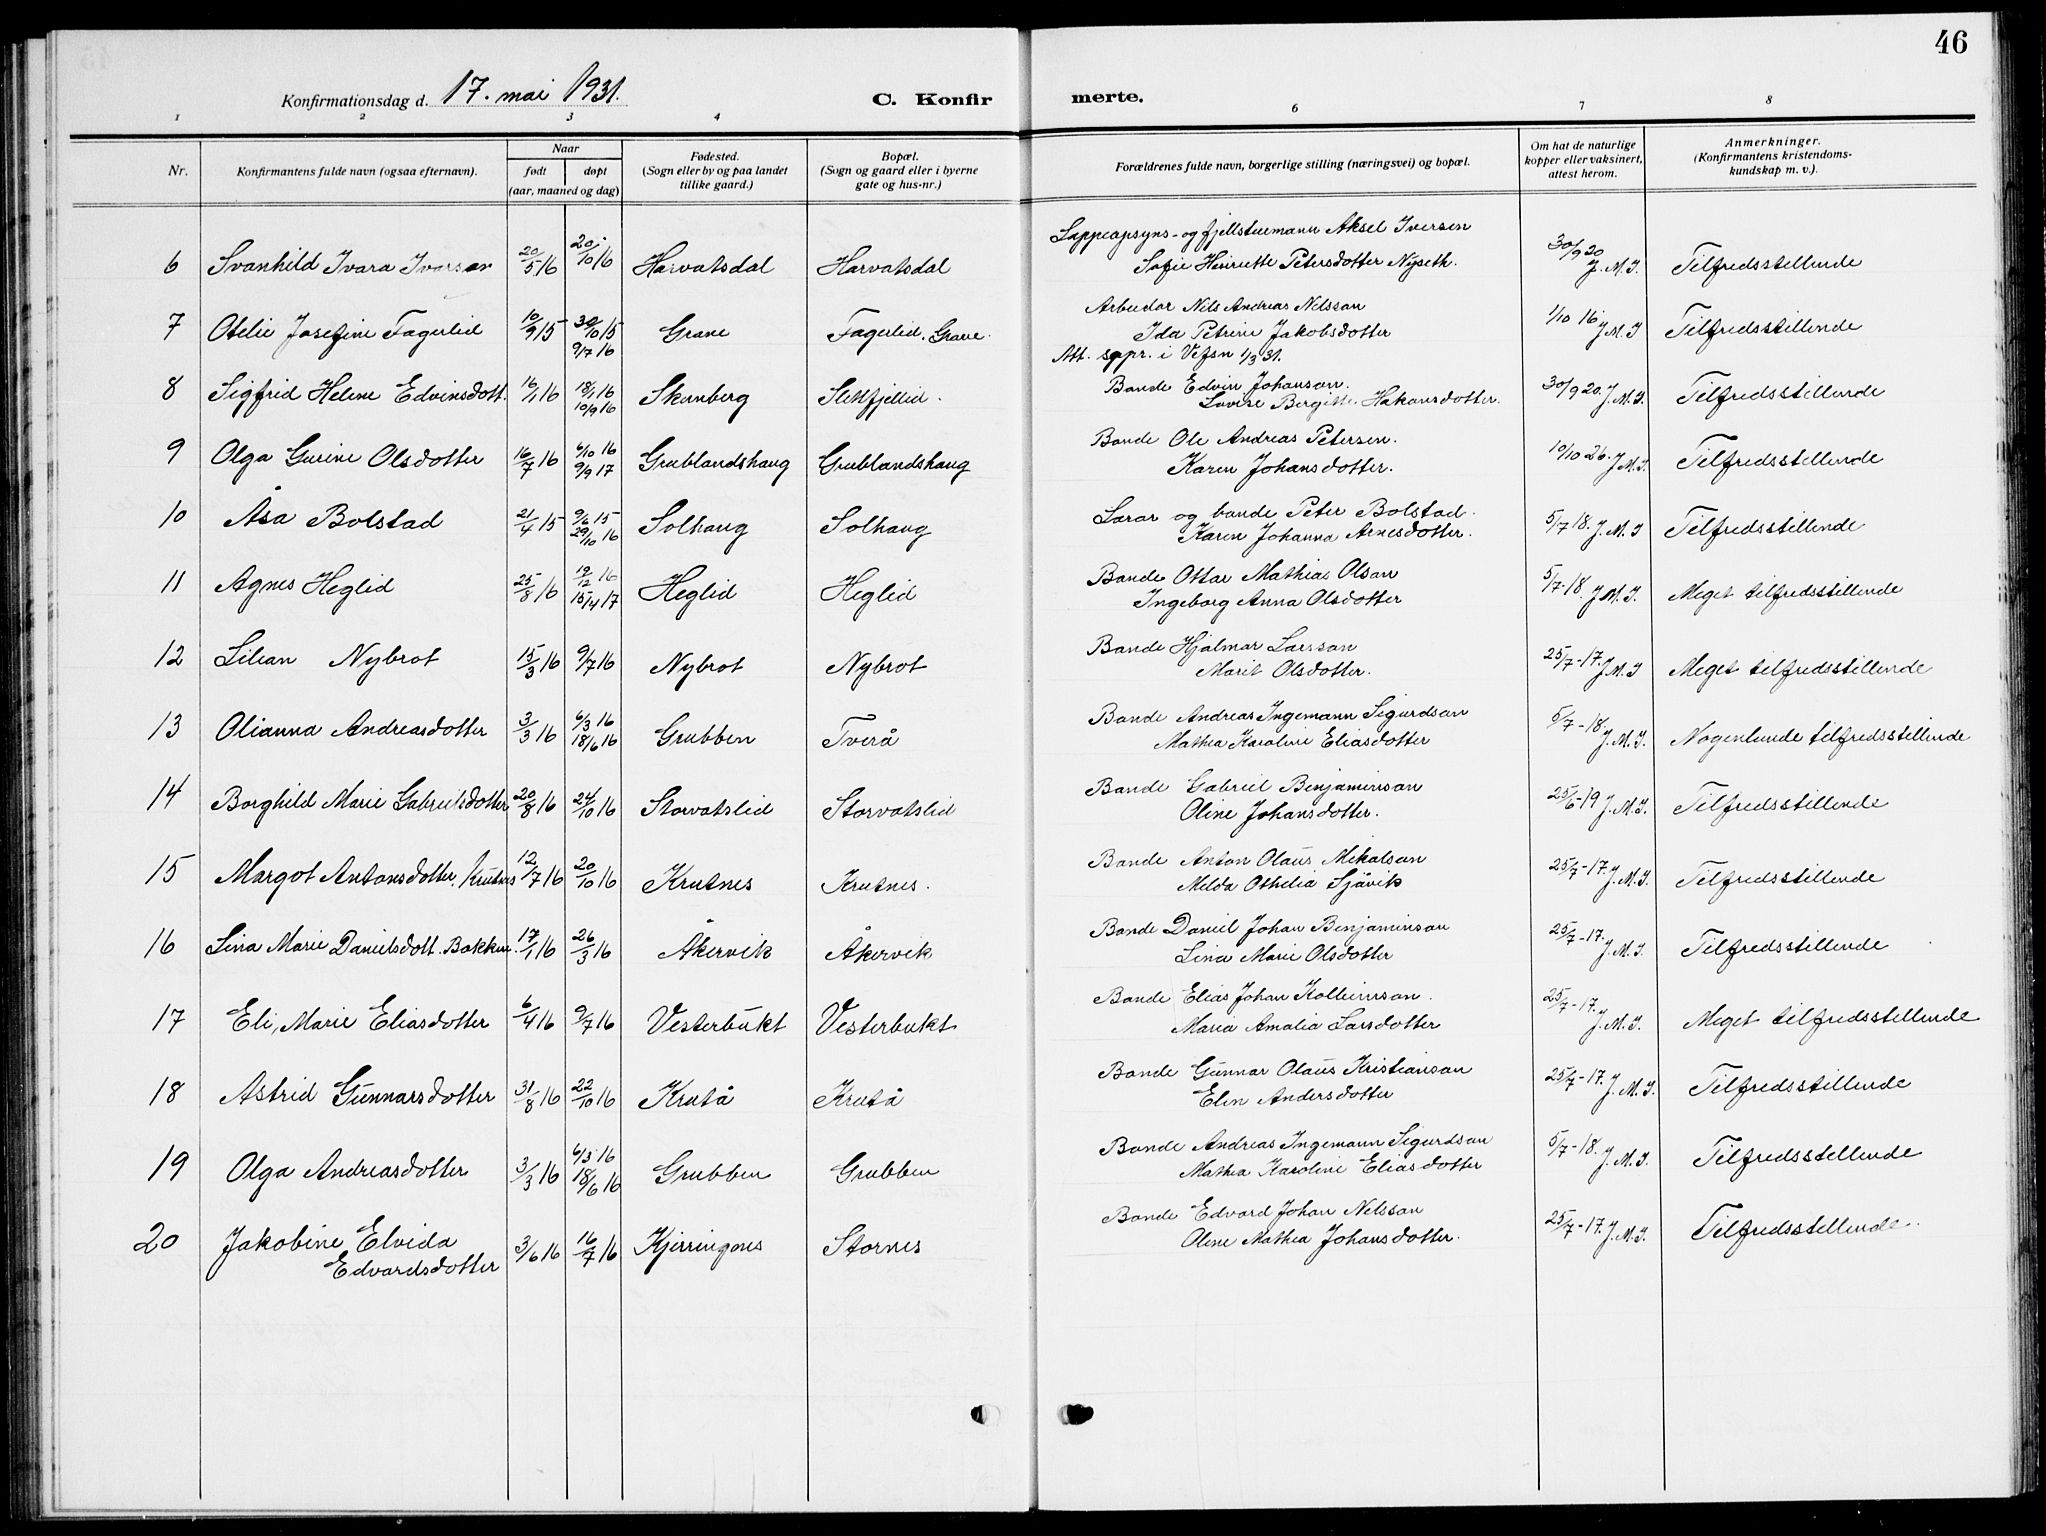 46
Konfirmationsdag d. 17. mai 1931.
C. Konfir
merte.
1 2 3 4 6 7 8
Nr. Konfirmantens fulde navn (ogsaa efternavn). Naar født døpt (aar, maaned og dag) Fødested. (Sogn eller by og paa landet tillike gaard.) Bopæl. (Sogn og gaard eller i byerne gate og hus-nr.) Forældrenes fulde navn, borgerlige stilling (næringsvei) og bopæl. Om hat de naturlige kopper eller vaksinert, attest herom. Anmerkninger. (Konfirmantens kristendoms-kundskap m. v.).
Lappeopsyns- og fjellstuemann Aksel Iversen
6 Svanhild Ivara Ivarsen 20/5 16 20/10 16 Harvatsdal Harvatsdal Sofie Henriette Petersdotter Nyseth. 30/9 20 J.M.I. Tilfredsstillende
Arbeidar Nils Andreas Nilsson
7 Otelie Josefine Fagerlid 10/9 15 30/10 15 9/7 16 Grane Fagerlid, Grane. Ida Petrine Jakobsdotter 1/10 16 J.M.I Tilfredsstillende
Att. sppr. i Vefsn 1/3 31.
Bonde Edvin Johanson.
8 Sigfrid Helene Edvinsdott. 16/1 16 18/1 16 10/9 16 Skanberg Slettfjellid. Lovise Bergitte Hakonsdotter. 30/9 20. J.M.I. Tilfredsstillende
Bonde Ole Andreas Petersen.
9 Olga Gurine Olsdotter 16/7 16 6/10 16 9/9 17 Grublandshaug Grublandshaug Karen Johansdotter. 19/10 26. J.M.I. Tilfredsstillende
Lærar og bonde Peter Bolstad.
10 Åsa Bolstad 21/4 15 9/6 15 29/10 16 Solhaug Solhaug Karen Johanna Arnesdotter. 5/7 18. J.M.I Tilfredsstillende
Bonde Ottar Mathias Olson
11 Agnes Heglid 25/8 16 19/12 16 15/4 17 Heglid Heglid Ingeborg Anna Olsdotter 5/7-18 J.M.I. Meget tilfredsstillende
Bonde Hjalmar Larsson
12 Lilian Nybrot 15/3 16 9/7 16 Nybrot Nybrot Marit Olsdotter. 25/7-17. J.M.I Meget tilfredsstillende
Bonde Andreas Ingemann Sigurdson
13 Olianna Andreasdotter 3/3 16 6/3 16 18/6 16 Grubben Tverå Mathea Karoline Eliasdotter 5/7-18 J.M.I. Nogenlunde tilfredsstillende
Bonde Gabriel Benjaminson
14 Borghild Marie Gabrielsdotter 20/8 16 24/10 16 Storvatslid Storvatslid Oline Johansdotter. 25/6-19 J.M.I. Tilfredsstillende
Bonde Anton Olaus Mikalson
15 Margot Antonsdotter, Krutnes 12/7 16 20/10 16 Krutnes Krutnes. Milda Othelia Sjåvik 25/7-17. J.M.I. Tilfredsstillende
Bonde Daniel Johan Benjaminson
16 Lina Marie Danielsdott. Bakken. 17/1 16 26/3 16 Åkervik Åkervik Lina Marie Olsdotter 25/7-17. J.M.I. Tilfredsstillende
Bonde Elias Johan Kolbeinson.
17 Eli, Marie Eliasdotter 6/4 16 9/7 16 Vesterbukt Vesterbukt Maria Amalia Larsdotter 25/7-17. J.M.I. Meget tilfredsstillende
Bonde Gunnar Olaus Kristianson
18 Astrid Gunnarsdotter 31/8 16 22/10 16 Krutå Krutå Elen Andersdotter 25/7-17. J.M.I. Tilfredsstillende
Bonde Andreas Ingemann Sigurdson
19 Olga Andreasdotter 3/3 16 6/3 16 18/6 16 Grubben Grubben Mathea Karoline Eliasdotter 5/7-18. J.M.I. Tilfredsstillende
Bonde Edvard Johan Nilsson
20 Jakobine Elvida 3/6 16 16/7 16 Kjerringnes Stornes Oline Mathea Johansdotter. 25/7-17. J.M.I. Tilfredsstillende.
Edvardsdotter